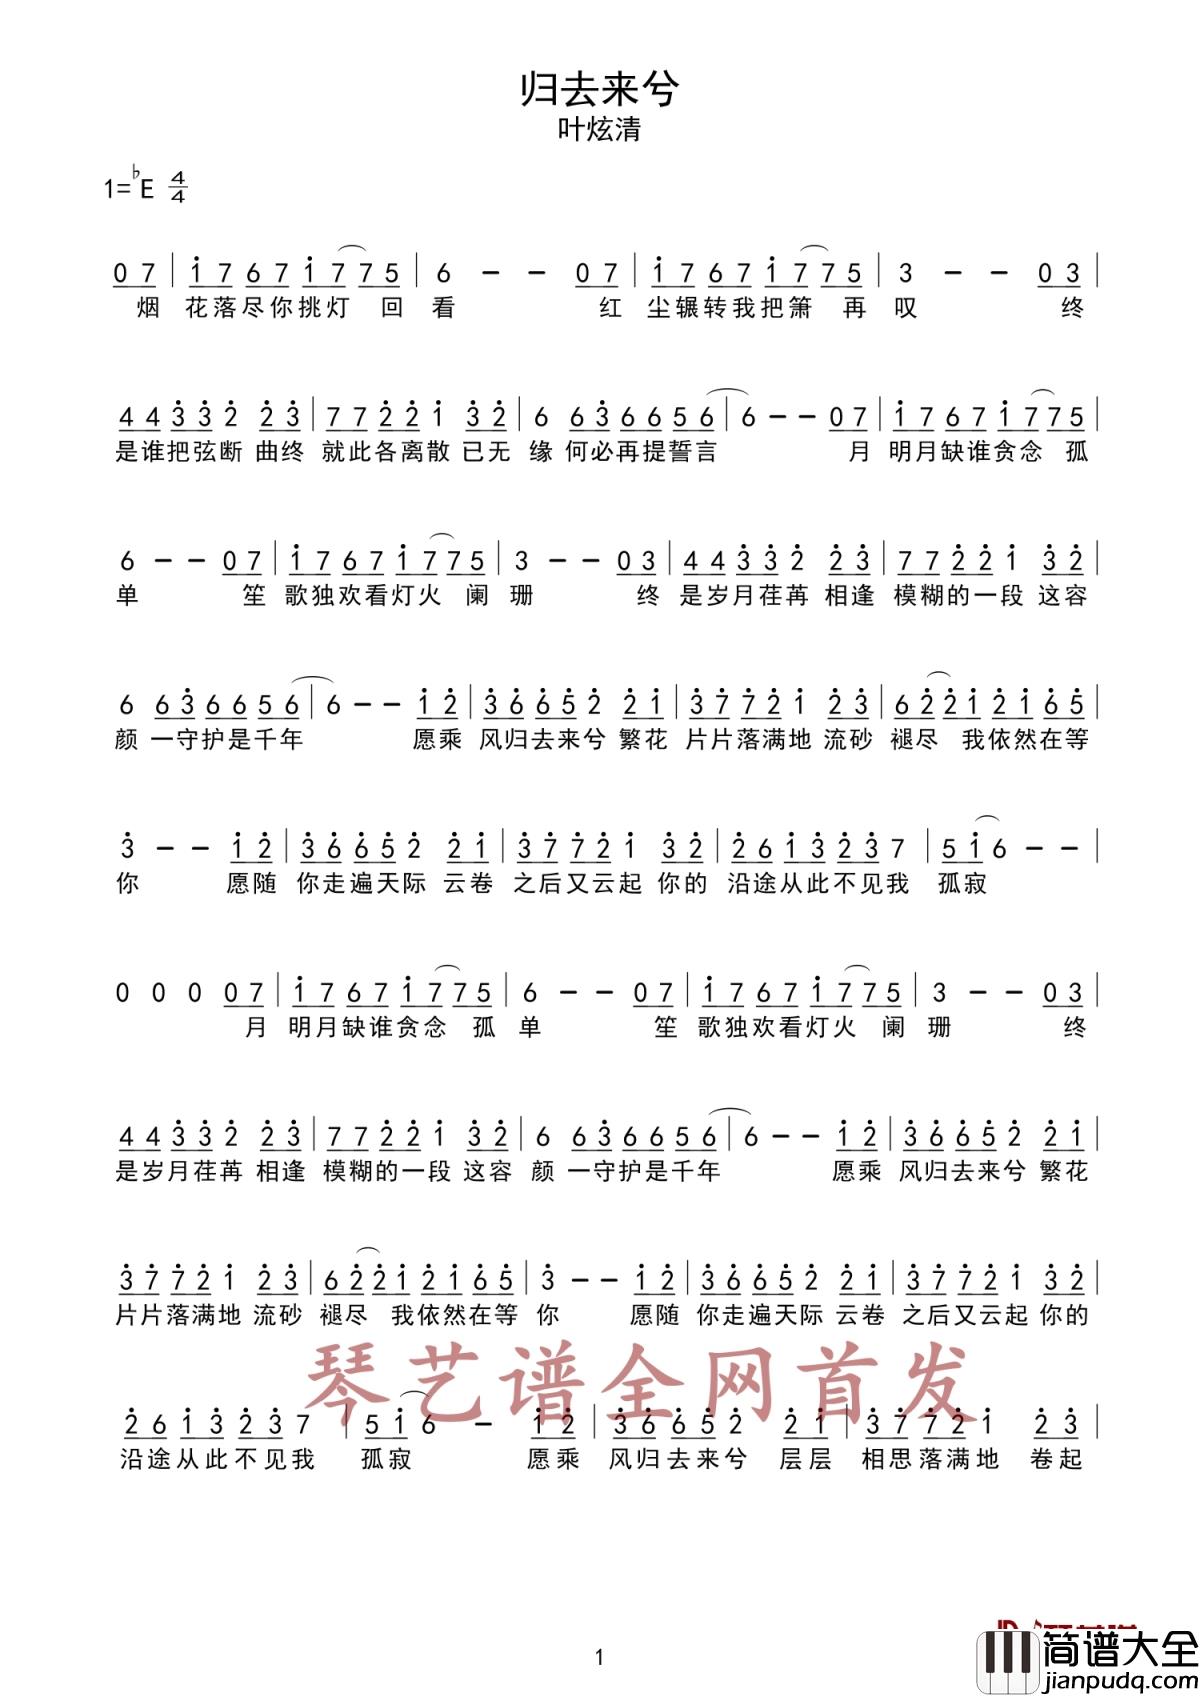 归去来兮
叶炫清
1=♭E 4/4
07|i̲767i775|6 - - 07|i767i775|3 - - 03|
烟 花落尽你挑灯 回 看 红 尘辗转我把箫 再 叹 终
44332 23|7722i 32|6 636656|6 - - 07|i767i775|
是谁把弦断 曲终 就此各离散 已无 缘 何必再提誓言 月 明月缺谁贪念 孤
6 - - 07|i767i775|3 - - 03|44332 23|7722i 32|
单 笙 歌独欢看灯火 阑 珊 终 是岁月荏苒 相逢 模糊的一段 这容
6 636656|6 - - i2|36652 2i|3772i 23|622i2i65|
颜 一守护是千年 愿乘 风归去来兮 繁花 片片落满地 流砂 褪尽 我依然在等
3 - - i2|36652 2i|3772i 32|26i3237|5i6 - -|
你 愿随 你走遍天际 云卷 之后又云起 你的 沿途从此不见我 孤寂
0 0 0 07|i767i775|6 - - 07|i767i775|3 - - 03|
月 明月缺谁贪念 孤 单 笙 歌独欢看灯火 阑 珊 终
44332 23|7722i 32|6 636656|6 - - i2|36652 2i|
是岁月荏苒 相逢 模糊的一段 这容 颜 一守护是千年 愿乘 风归去来兮 繁花
3772i 23|622i2i65|3 - - i2|36652 2i|3772i 32|
片片落满地 流砂 褪尽 我依然在等 你 愿随 你走遍天际 云卷 之后又云起 你的
琴艺谱全网首发
26i3237|5i6 - i2|36652 2i|3772i 23|
沿途从此不见我 孤寂 愿乘 风归去来兮 层层 相思落满地 卷起
1
简谱大全
jianpudq.com